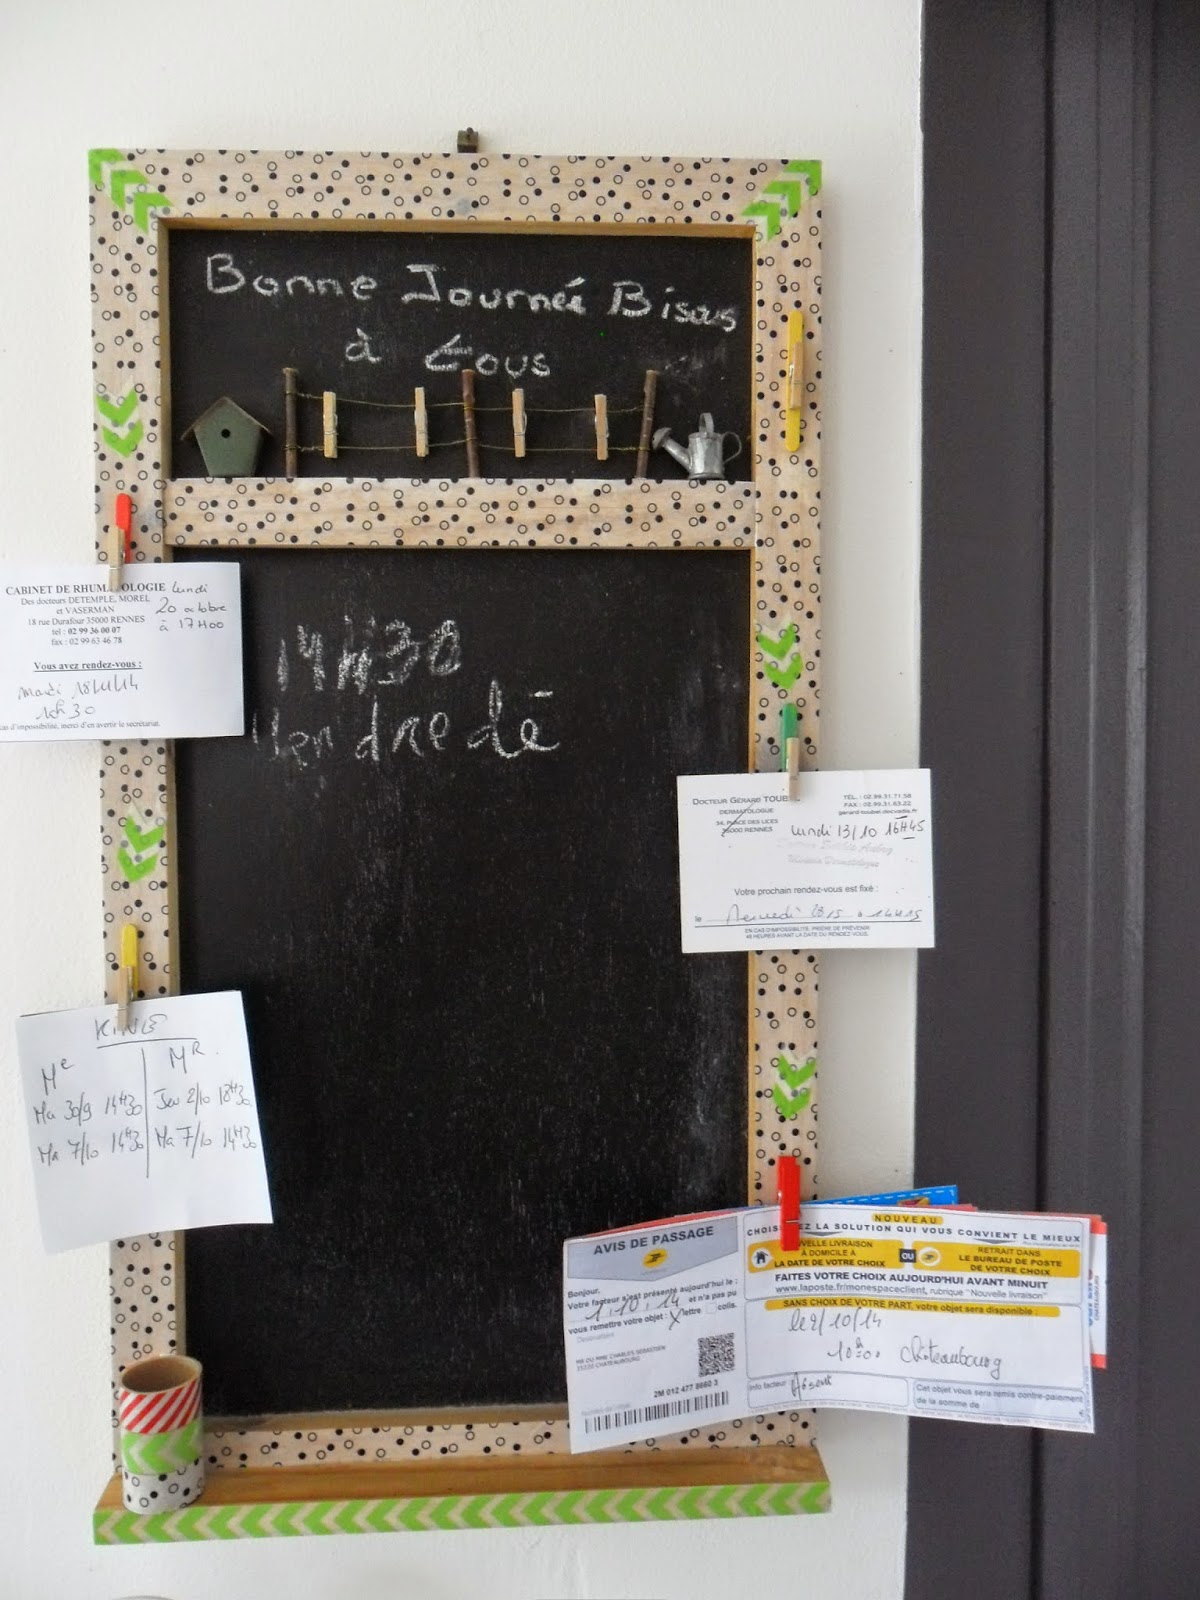 Bonne Journée Bisous
à tous
CABINET DE RHUMATOLOGIE
Des docteurs DETEMPLE, MOREL
et VASERMAN
18 rue Durafour 35000 RENNES
tel : 02 99 36 00 07
fax : 02 99 63 46 78
lundi
20 octobre
à 17H00
Vous avez rendez-vous :
mardi 18/11/14
16h30
cas d'impossibilité, merci d'en avertir le secrétariat.
14H30
Vendredé
DOCTEUR GÉRARD TOUBEL
DERMATOLOGUE
34, PLACE DES LICES
35000 RENNES
TÉL. : 02.99.31.71.58
FAX : 02.99.31.63.22
gerard-toubel.docvadis.fr
lundi 13/10 16H45
Votre prochain rendez-vous est fixé :
le Mercredi 28/5 à 14H15
EN CAS D'IMPOSSIBILITÉ, PRIÈRE DE PRÉVENIR
48 HEURES AVANT LA DATE DU RENDEZ-VOUS.
KINÉ
Me MR
Ma 30/9 14H30 Jeu 2/10 18H30
Ma 7/10 14H30 Ma 7/10 14H30
AVIS DE PASSAGE
Bonjour,
Votre facteur s'est présenté aujourd'hui le :
1.10.14 et n'a pas pu
vous remettre votre objet : X lettre colis.
MR OU MME CHARLES SEBASTIEN
35220 CHATEAUBOURG
2M 012 477 8660 3
NOUVEAU
CHOISISSEZ LA SOLUTION QUI VOUS CONVIENT LE MIEUX
NOUVELLE LIVRAISON
À DOMICILE À
LA DATE DE VOTRE CHOIX
OU
RETRAIT DANS
LE BUREAU DE POSTE
DE VOTRE CHOIX
FAITES VOTRE CHOIX AUJOURD'HUI AVANT MINUIT
www.laposte.fr/monespaceclient, rubrique "Nouvelle livraison"
SANS CHOIX DE VOTRE PART, votre objet sera disponible :
le 2/10/14
10h00 Châteaubourg
Info facteur Absent
Cet objet vous sera remis contre-paiement
de la somme de